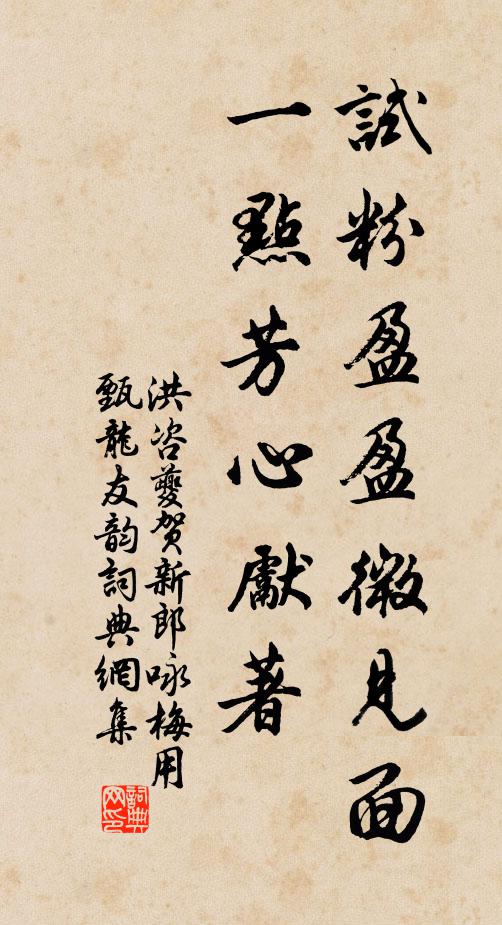 試粉盈盈微見面
一點芳心獻著
洪咨夔賀新郎咏梅用
甄龍友韵詞典網集
詞典網印